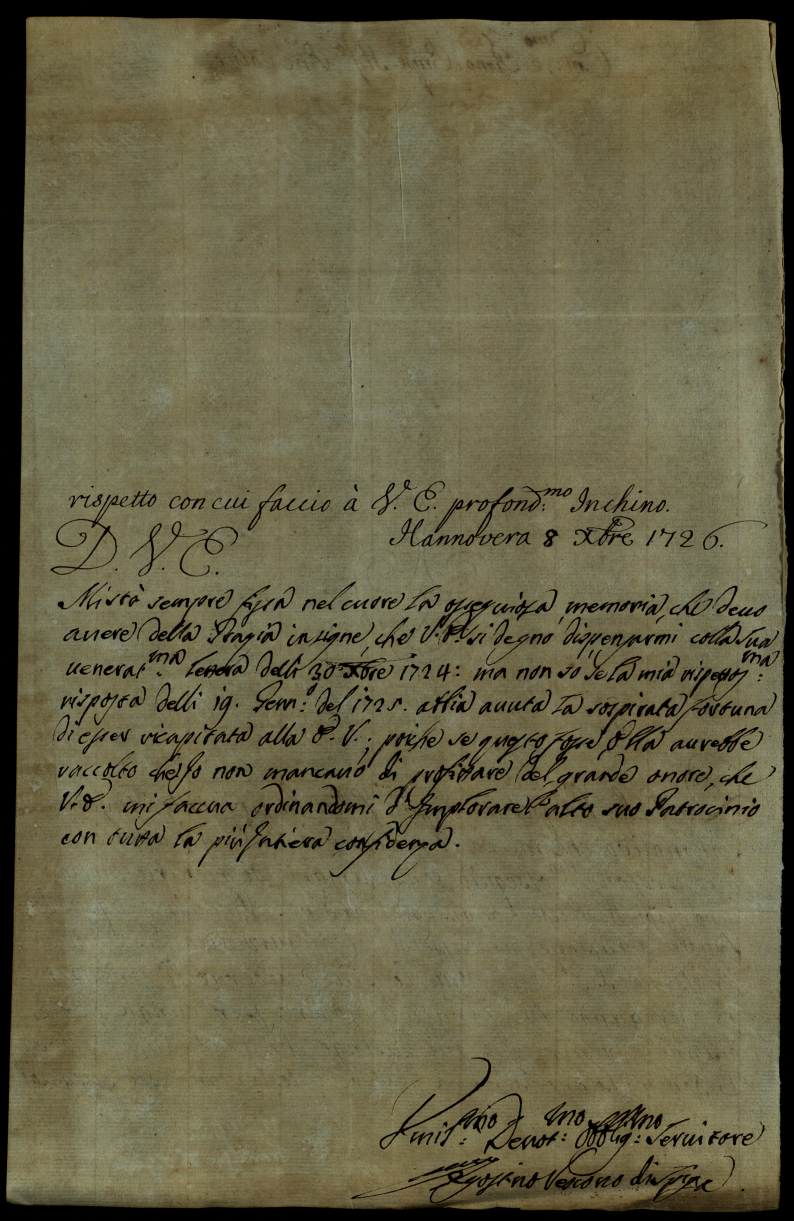 rispetto con cui faccio à V. E. profond:mo Inchino.
Hannovera 8 Xbre 1726.
D. V. E.
Mi stà sempre fissa nel cuore la ossequiosa memoria, che devo
avere della Grazia insigne, che V. E. si degnò dispensarmi colla sua
venerat:ma lettera delli 30 Xbre 1724: ma non so se la mia rispettos:ma
risposta delli 19. Genn:o del 1725. abbia avuta la sospirata fortuna
di esser ricapitata alla E. V.; poiche se questo fosse, Ella avrebbe
raccolto che Io non mancavo di profittare del grande onore, che
V. E. mi faceva ordinandomi d'Implorare l'alto suo Patrocinio
con tutta la più Intiera confidenza.
Umil:mo Devot:mo Obblig:mo Servitore
Agostino Vescovo di Spiga